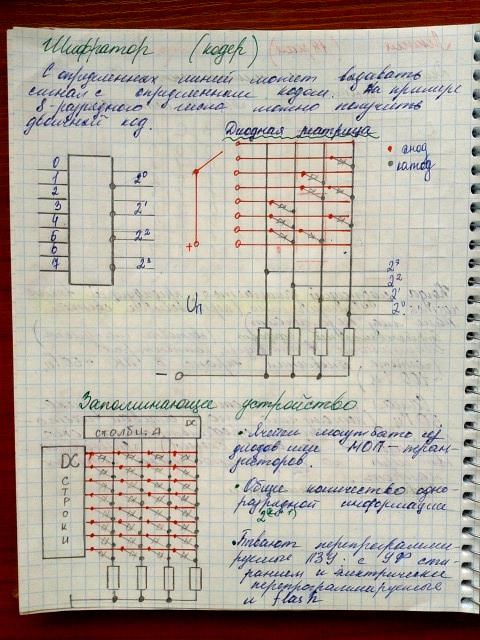 Шифратор (кодер)
С определенных линий может выдавать
сигнал с определенным кодом. На примере
8-разрядного числа можно получить
двоичный код.
Диодная матрица
• анод
• катод
0
1
2
3
4
5
6
7
2⁰
2¹
2²
2³
+
Uп
2³
2²
2¹
2⁰
−
Запоминающее устройство
DC
столбца
DC
СТРОКИ
• Ячейки могут быть из
диодов или МОП-тран-
зисторов.
• Общее количество одно-
разрядной информации
• Бывают перепрограмми-
руемые ПЗУ с УФ сти-
ранием и электрически
перепрограммируемые
и flash